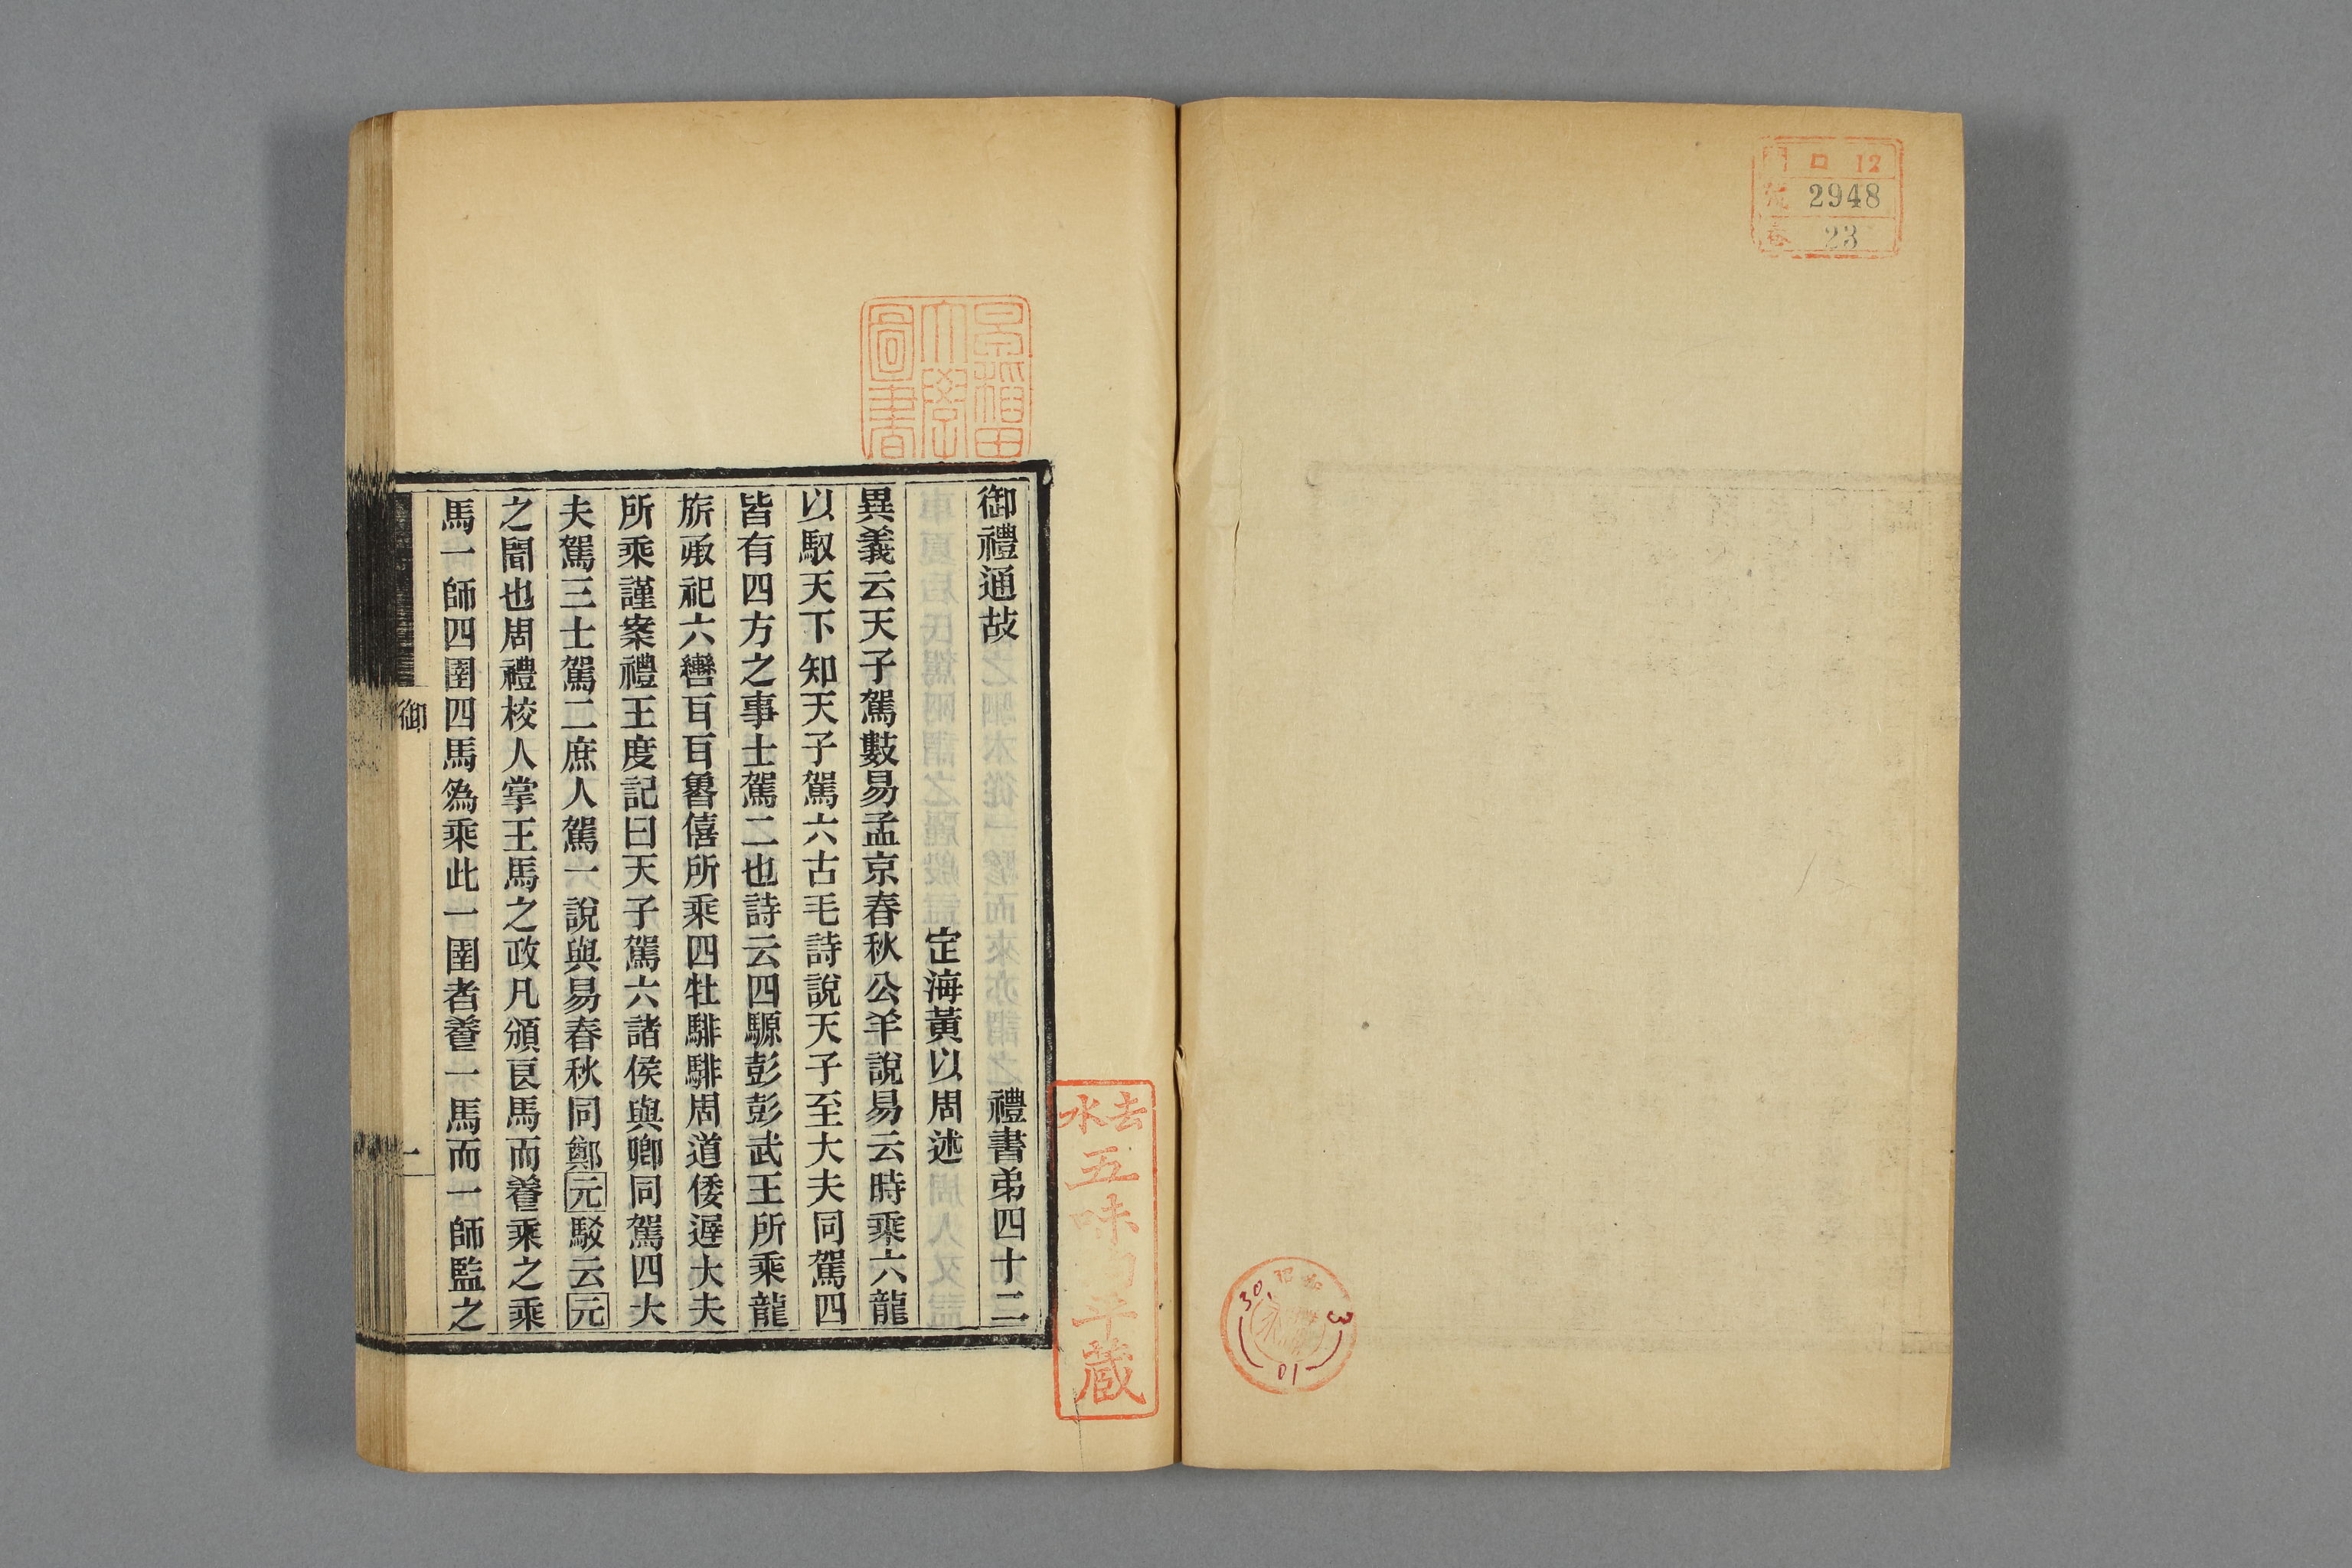 門 口 12
號 2948
卷 23
30. 3
10
早稻田
大學
圖書
御禮通故 禮書弟四十二
定海黃以周述
異義云天子駕數易孟京春秋公羊說易云時乘六龍
以馭天下知天子駕六古毛詩說天子至大夫同駕四
皆有四方之事士駕二也詩云四騵彭彭武王所乘龍
旂承祀六轡耳耳魯僖所乘四牡騑騑周道倭遟大夫
所乘謹案禮王度記曰天子駕六諸侯與卿同駕四大
夫駕三士駕二庶人駕一說與易春秋同鄭元駁云元
之聞也周禮校人掌王馬之政凡頒良馬而養乘之乘
馬一師四圉四馬為乘此一圉者養一馬而一師監之
御
一
去水
五味 藏